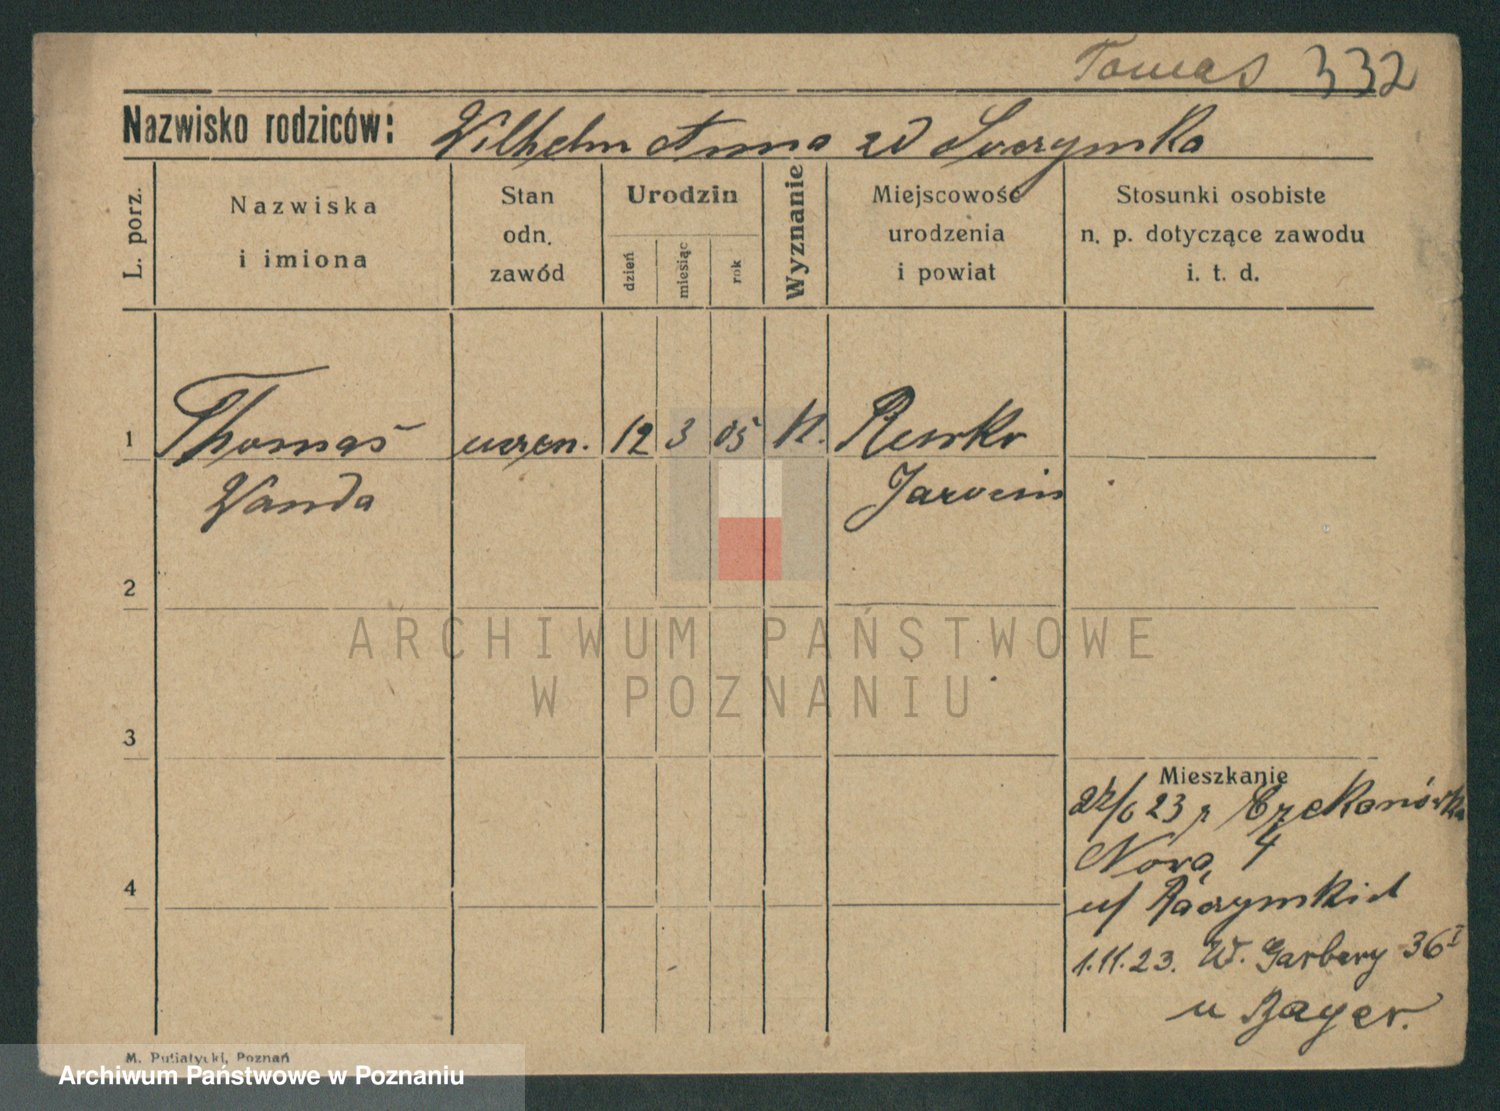 Tomas 332
Nazwisko rodziców: Wilhelm Anna zd
L. porz.
Nazwiska
i imiona
Stan
odn.
zawód
Urodzin
dzień
miesiąc
rok
Wyznanie
Miejscowość
urodzenia
i powiat
Stosunki osobiste
n. p. dotyczące zawodu
i. t. d.
1 Thomas uczen. 12 3 05 K.
Wanda Jarocin
2
ARCHIWUM PAŃSTWOWE
W POZNANIU
3
Mieszkanie
23
4
1.11.23. W. Garbary 36 I
u Bayer.
M. Putiatycki, Poznań
Archiwum Państwowe w Poznaniu